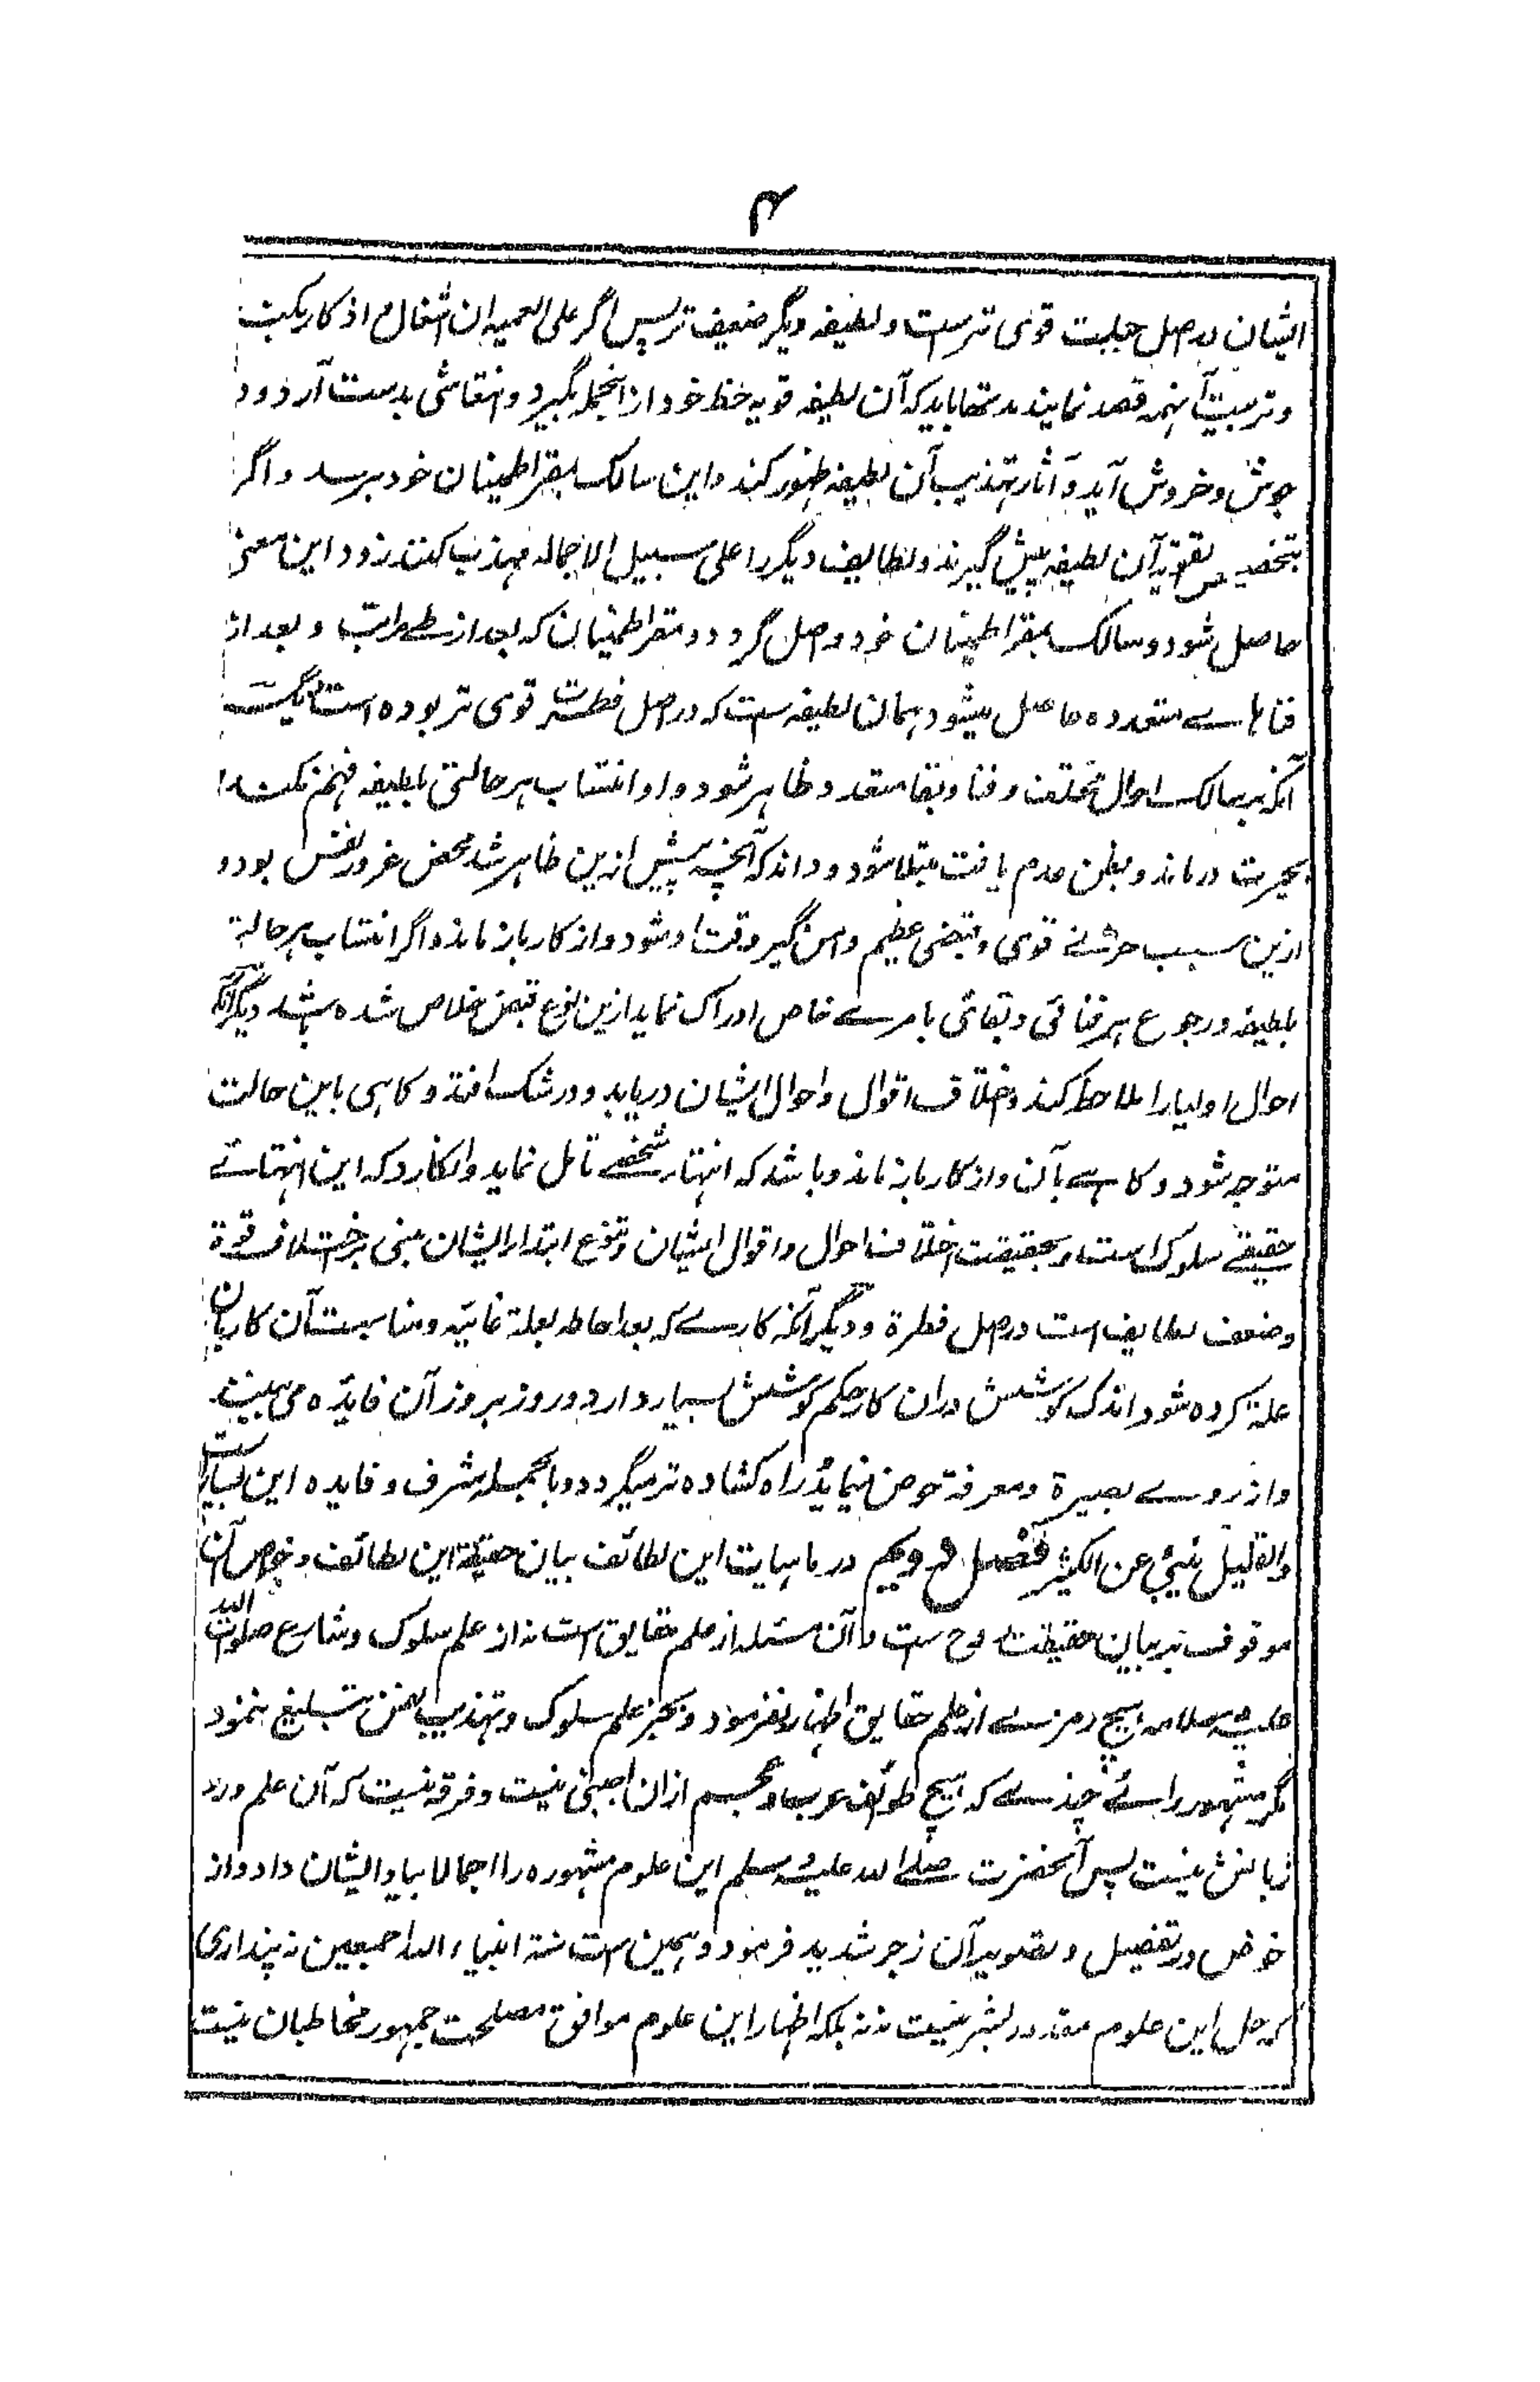 ۴
ایشان در اصل جبلت قوی ترست و لطیفه دیگر ضعیف تر پس اگر علی العمیه ان اشغال و اذکار بکنند
و تربیت آنهمه قصد نمایند مدتها باید که آن لطیفه قویه حظ خود ازانجمله بگیرد و انتعاشی بدست آرد و در
جوش و خروش آید و آثار تهذیب آن لطیفه ظهور کند و این سالک بمقر اطمینان خود برسد و اگر
بتخصیص تقویۀ آن لطیفه پیش گیرند و لطایف دیگر را علی سبیل الاجماله مهذب کنند زود این معنی
حاصل شود و سالک بمقر اطمینان خود واصل گردد و مقر اطمینان که بعد از طے مراتب و بعد از
فناهاے متعدده حاصل میشود همان لطیفه ست که در اصل فطرت قوی تر بوده است دیگر
آنکه بر سالک احوال مختلف و فنا و بقا متعدد ظاهر شود و او انتساب هر حالتی بلطیفه فهم نکند
بحیرت درماند و بظن عدم یافت مبتلا شود و داند که آنچه پیش ازین ظاهر شد محض غرور نفس بود و
ازین سبب قوی و قبضی عظیم دامن گیر وقت او شود و از کار باز ماند و اگر انتساب هر حالة
بلطیفه و رجوع هر فنائی و بقائی بامرے خاص ادراک نماید ازین نوع قبض خلاص شده باشد دیگر آنکه
احوال اولیا را ملاحظه کند و اختلاف اقوال و احوال ایشان دریابد و در شک افتد و گاهی باین حالت
متوجه شود و گاهے بآن و از کار باز ماند و باشد که انتهاے شخصے تامل نماید و انگارد که این انتهاے
حقیقے سلوک است و بحقیقت اختلاف احوال و اقوال ایشان و تنوع ابتدای ایشان مبنی بر اختلاف قوة
و ضعف لطایف است در اصل فطرة و دیگر آنکه کارے که بعد احاطه بعلة غائیه و مناسبت آن کار بآن
علة کرده شود اندک کوشش دران کار حکم کوشش بسیار دارد و روز بروز آن فایده می بیند
و از روے بصیرة و معرفة خوض مینماید و راه کشاده تر میگردد و بالجمله شرف و فایده این بسیار ست
و القلیل ینبئ عن الکثیر فصل دویم در ماهیات این لطائف بیان حقیقة این لطائف و خواص آن
موقوف بر بیان حقیقت روح ست و آن مسئله از علم حقایق است نه از علم سلوک و شارع صلوات الله
علیه و سلامه هیچ رمزے از علم حقایق اظهار نفرمود و بجز علم سلوک و تهذیب نفس تبلیغ ننمود
مگر مشهور راے چندے که هیچ طوائف عرب و عجم ازان اجنبی نیست و فرقه نیست که آن علم ورد
زبانش نیست پس آنحضرت صلے الله علیه و سلم این علوم مشهوره را اجمالا بیاد ایشان داد و از
خوض در تفصیل و تصویر آن زجر شدید فرمود و همین ست سنة انبیاء الله اجمعین نه پنداری
که حل این علوم مقدور بشر نیست نه نه بلکه اظهار این علوم موافق مصلحت جمهور مخاطبان نیست